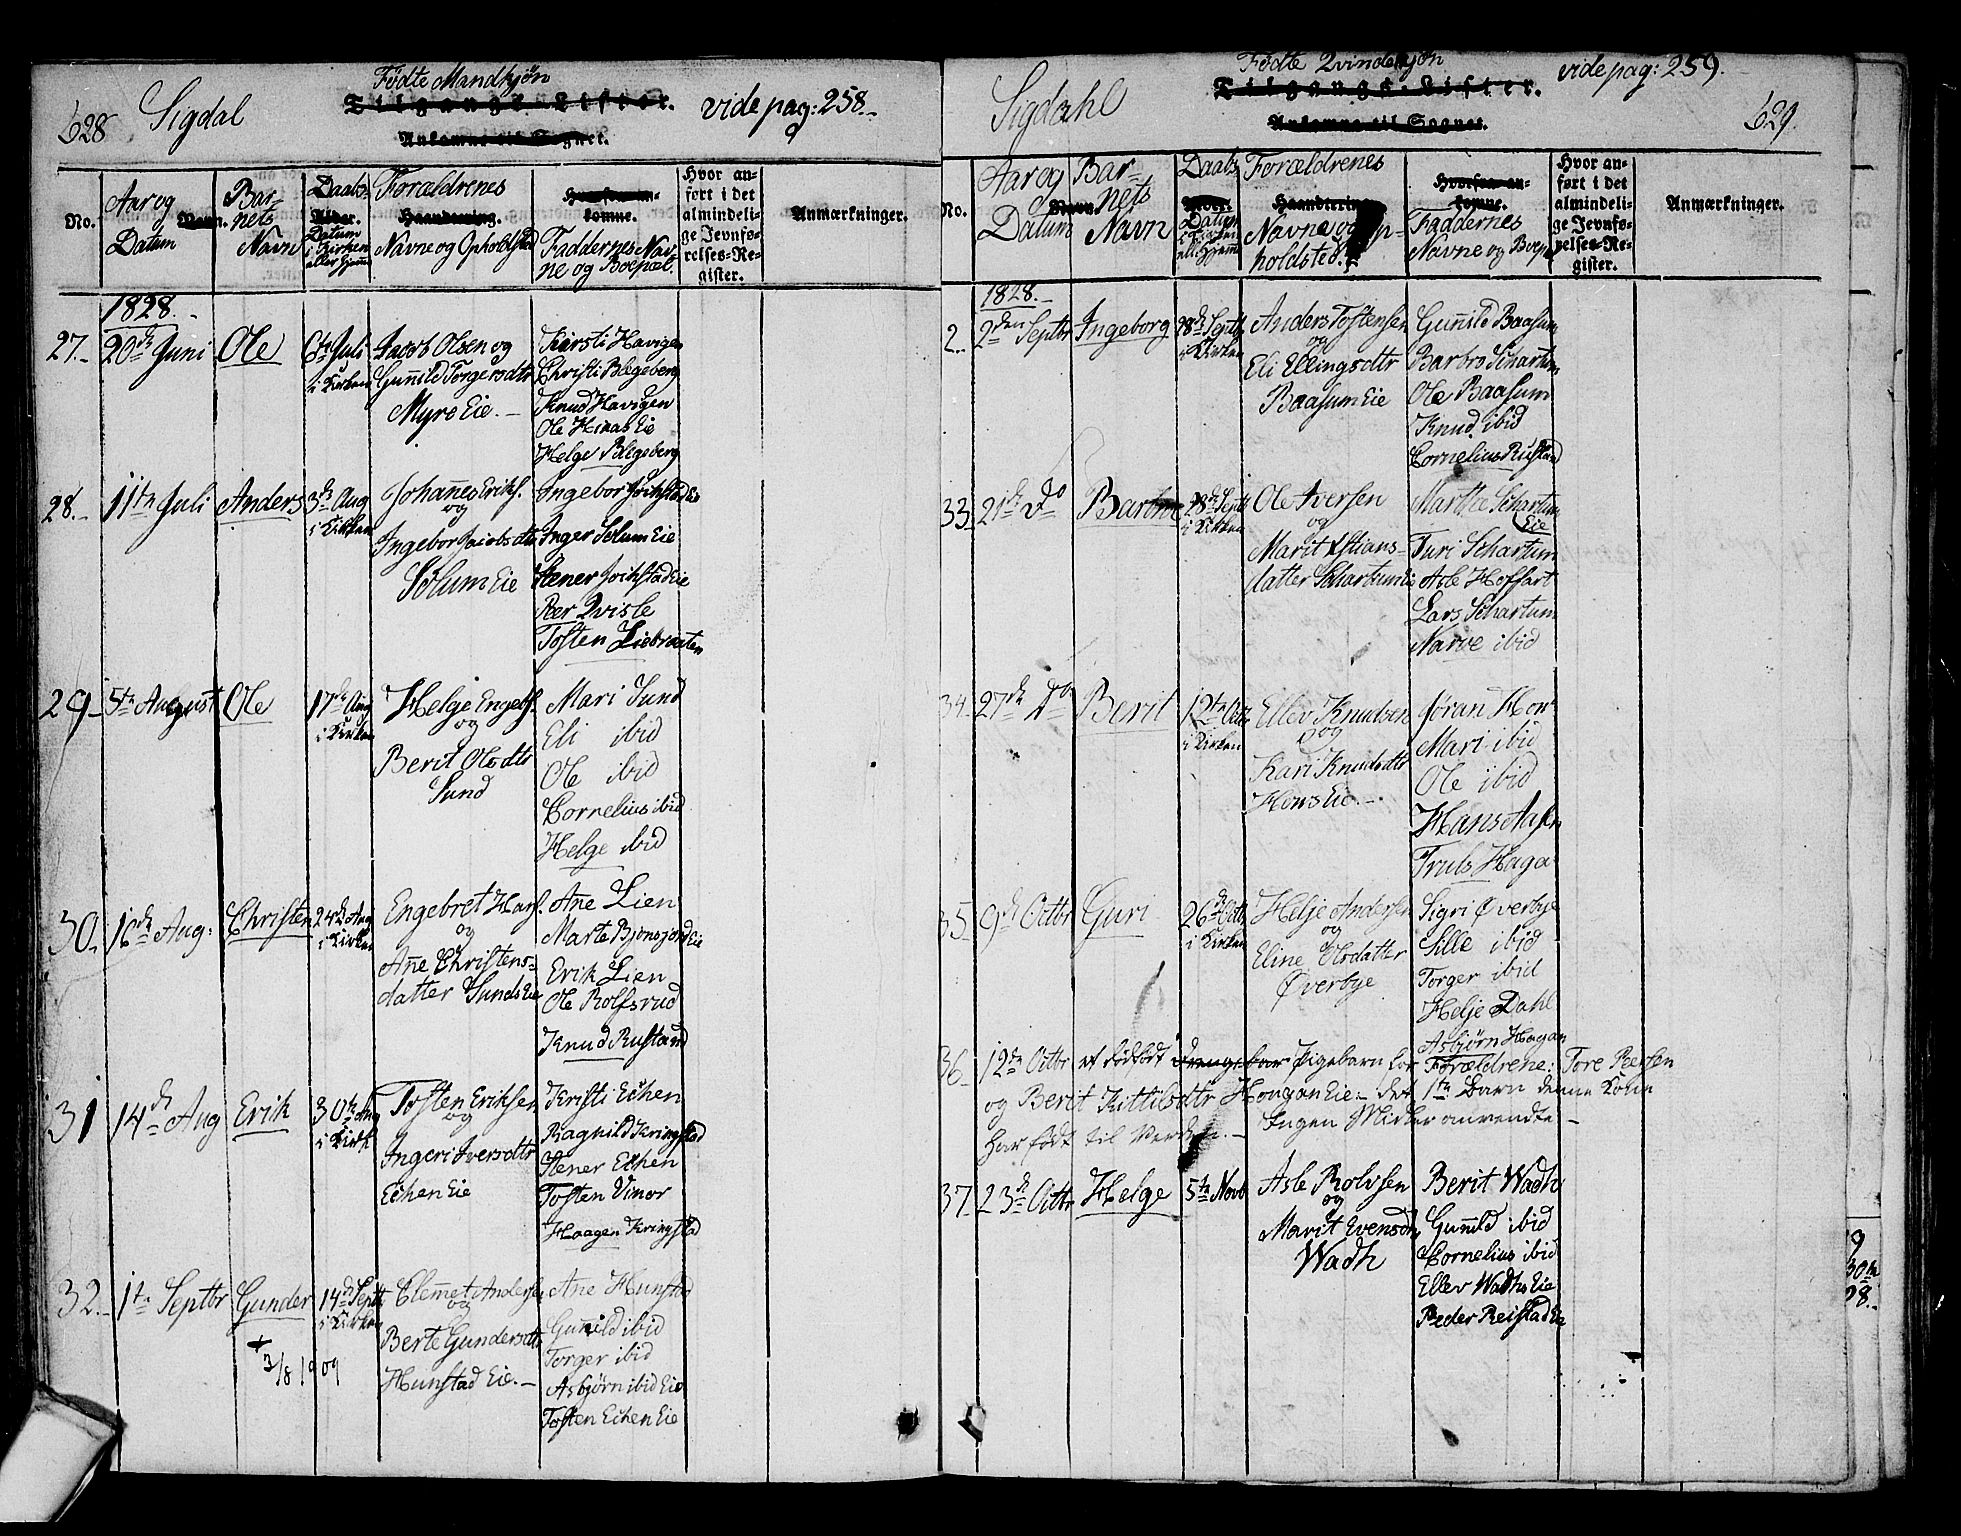 628 Sigdal
Fødte Mandkjøn
Tilgangs-Lister.
vide pag: 258.
Ankomne til Sognet.
No.
Aar og Datum
Barnets Navn
Daabs-Datum i Kirken eller Hjemme
Forældrenes Navne og Opholdsted
Faddernes Navne og Boepæl.
Hvor anført i det almindelige Jevnførelses-Register.
Anmærkninger.
1828.
27. 20de Juni Ole 6te Juli i Kirken
Jacob Olsen og
Gunnild Torgersdtr
Myre Eie.
Kiersti Havigen
Christi Blegeberg
Knud Havigen
Ole Hiraas Eie
Helge Blegeberg
28. 11te Juli Anders 3de Aug i Kirken
Johannes Eriks.
og
Ingebor Jacobsdtr
Solum Eie
Ingebor Joikstad Eie
Inger Solum Eie
Stener Joikstad Eie
Peer Qvisle
Tosten Liebraaten
29. 5te August Ole 17de Aug i Kirken
Helge Engebs.
og
Berit Olsdtr
Sund
Mari Sund
Eli ibid
Ole ibid
Cornelius ibid
Helge ibid
30. 16de Aug: Christen 24de Aug i Kirken
Engebret Hans.
og
Ane Christens-
datter Sunds Eie
Ane Lien
Marte Bjonsjord Eie
Erik Lien
Ole Rolfsrud
Knud Rustand
31 14de Aug Erik 30te Aug i Kirk
Tosten Eriksen
og
Ingeri Iversdtr
Echen Eie
Kristi Echen
Ragnild Kringstad
Stener Echen
Tosten Vinor
Haagen Kringstad
32. 1te Septbr Gunder 14de Septb i Kirken
+ 3/8 1909
Clemet Andersen
og
Berte Gundersdtr
Hunstad Eie.
Ane Hunstad
Gunild ibid
Torger ibid
Asbjørn ibid Eie
Tosten Echen Eie
Sigdahl
Fødte Qvindekjøn
Tilgangs-Lister.
vide pag: 259.
629.
Ankomne til Sognet.
No.
Aar og Datum
Barnets Navn
Daabs Datum i Kirken ell. Hjemme
Forældrenes Navne og Opholdsted.
Faddernes Navne og Boepæl
Hvor anført i det almindelige Jevnførelses-Register.
Anmærkninger.
1828.
2. 2den Septbr Ingeborg 28de Septb i Kirken
Anders Tostensen
og
Eli Ellingsdtr
Baasum Eie
Gunild Baasum
Barbro Schartum
Ole Baasum
Knud ibid
Cornelius Rustand
33. 21de Do 28de Septb i Kirken
Ole Iversen
og
Marit Xstians-
datter Schartum Eie
Marthe Schartum
Eie
Turi Schartum
Asle Hoffart
Lars Schartum
Narve ibid
34. 27de Do Berit 12te Octb i Kirken
Ellev Knudsen
og
Kari Knudsdtr
Hows Eie.
Jøran How
Mari ibid
Ole ibid
Hans Aasen
Truls Haga
35 9de Octbr Guri 26de Octb i Kirken
Helje Andersen
og
Eline Olsdatter
Øverbye
Sigri Øverbye
Sille ibid
Torger ibid
Helje Dahl
Asbjørn Hagan
36. 12te Octbr et dødfødt Drengebar Pigebarn for Forældrene: Tore Peersen
og Berit Kittilsdtr Hougan Eie: det 1te Barn denne Kone
har født til Verden. Ingen Midler anvendte
37. 23de Octbr Helge 5te Novb
Asle Rolvsen
og
Marit Evensdtr
Wadh
Berit Wadh
Gunild ibid
Cornelius ibid
Ellev Wadhs Eie
Peder Reistad Eie